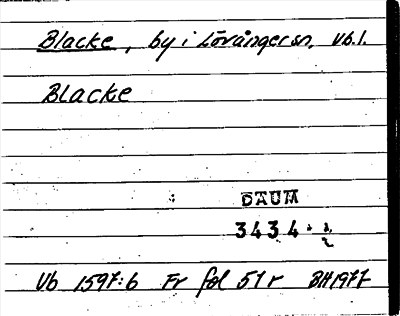 Blacke, by i Lövånger sn, Vb.l.
Blacke
DAUM
3434
Vb 1597:6 Fr fol 51r BH1977